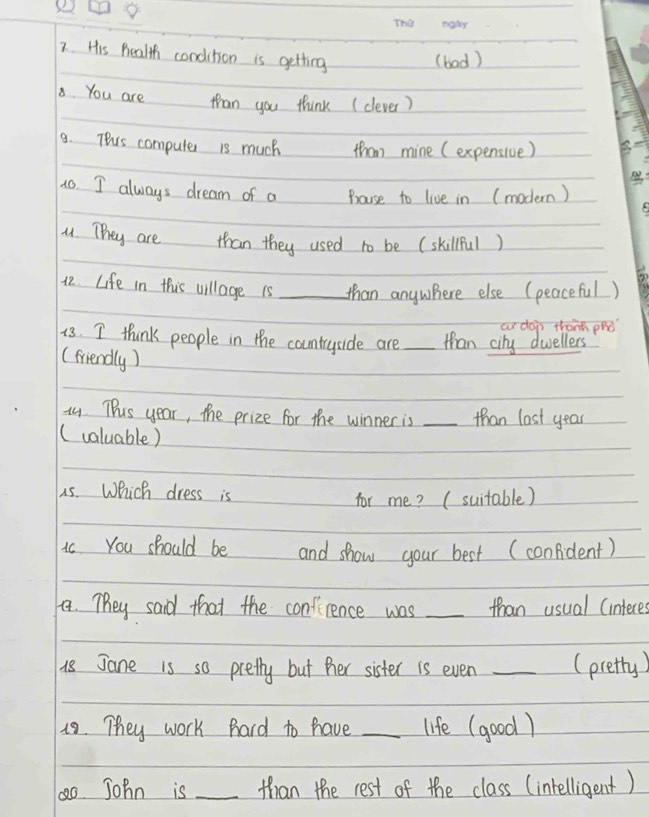 Thứ ngày
7. His health condition is getting (bad)
8. You are than you think (clever)
9. This computer is much than mine (expensive)
10. I always dream of a house to live in (modern)
11. They are than they used to be (skillful)
12. Life in this village is ____ than anywhere else (peaceful)
cư dân thành phố
13. I think people in the countryside are ____ than city dwellers
(friendly)
14. This year, the prize for the winner is ____ than last year
(valuable)
15. Which dress is for me? (suitable)
16 You should be and show your best (confident)
17. They said that the conference was ____ than usual (interes
18 Jane is so pretty but her sister is even ____ (pretty)
19. They work hard to have ____ life (good)
20. John is ____ than the rest of the class (intelligent)